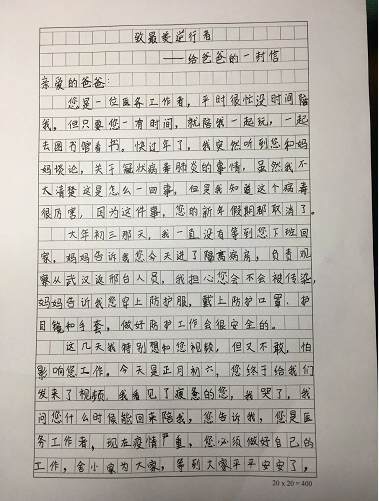 致最美逆行者
——给爸爸的一封信
亲爱的爸爸:
您是一位医务工作者,平时很忙没时间陪
我,但只要您一有时间,就陪我一起玩,一起
去图书馆看书。快过年了,我突然听到您和妈
妈谈论,关于冠状病毒肺炎的事情,虽然我不
大清楚这是怎么一回事,但是我知道这个病毒
很厉害,因为这件事,您的新年假期都取消了。
大年初三那天,我一直没有等到您下班回
家,妈妈告诉我您今天进了隔离病房,负责观
察从武汉返邢台人员,我担心您会不会被传染,
妈妈告诉我您穿上防护服,戴上防护口罩、护
目镜和手套,做好防护工作会很安全的。
这几天我特别想和您视频,但又不敢,怕
影响您工作。今天是正月初六,您终于给我们
发来了视频,我看见了疲惫的您,我哭了,我
问您什么时候能回来陪我,您告诉我,您是医
务工作者,现在疫情严重,您必须做好自己的
工作,舍小家为大家,等到大家平平安安了,
20×20=400